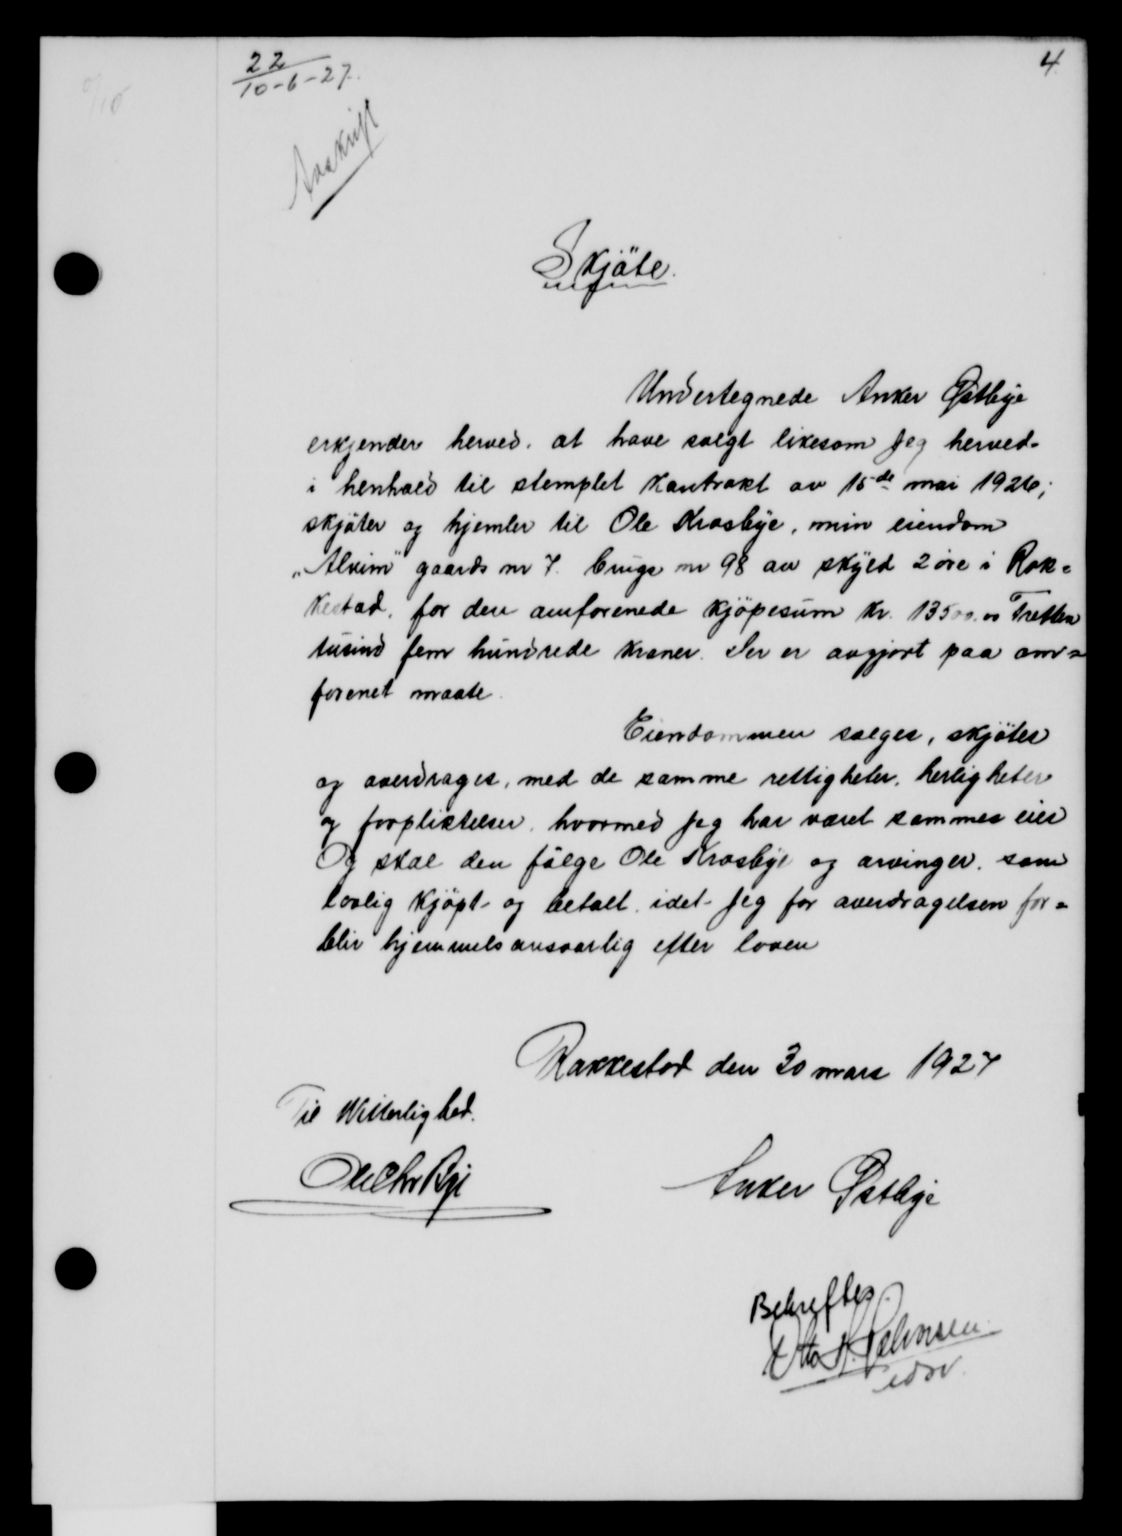 22
10-6-27.
4.
Avskrift
Skjöte.
Undertegnede Anker Østbye
erkjender herved. at have solgt likesom jeg herved-
i henhold til stemplet kontrakt av 15de mai 1926;
skjöter og hjemler til Ole Krosbye, min eiendom
"Alvim" gaards nr 7. brugs nr 98 av skyld 2 öre i Rak=
kestad. for den omforenede kjöpesum kr. 13500.00 Tretten
tusind fem hundrede kroner. Der er avgjort paa om=
forenet maate.
Eiendommen sælges, skjötes
og overdrages, med de samme rettigheter, herligheter
og forpliktelser. hvormed jeg har været sammes eier
Og skal den fölge Ole Krosbye og arvinger. som
lovlig kjöpt- og betalt. idet jeg for overdragelsen for=
blir hjemmelsansvarlig efter loven
Rakkestad den 30 mars 1927
Til Vitterlighed.
Ole Chr Bye
Anker Østbye
Bekreftes.
Otto Johnsen.